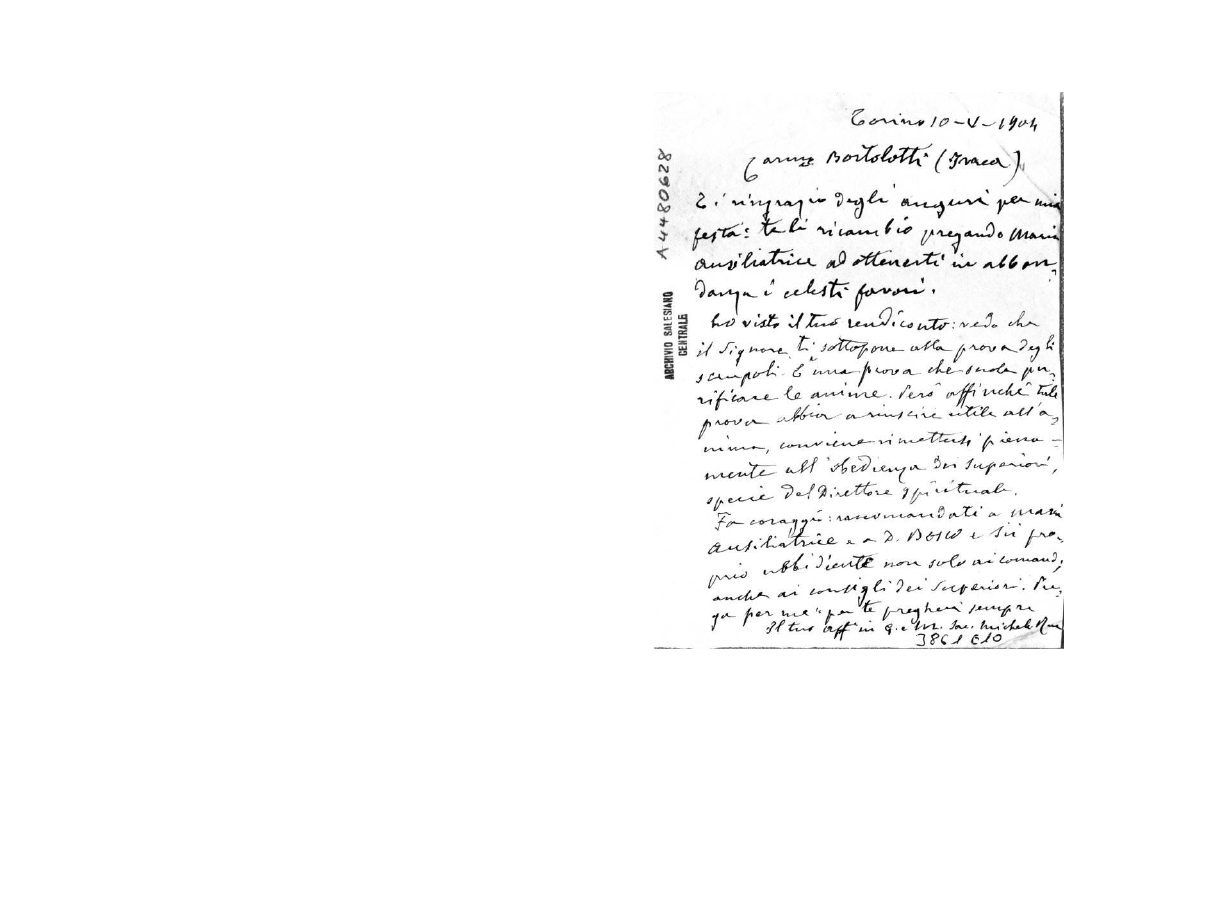 Torino 10-V-1904
Car.mo Bortolotti (Ivrea)
Ti ringrazio degli auguri per mia
festa: te li ricambio pregando Maria
Ausiliatrice ad ottenerti in abbon-
danza i celesti favori.
Ho visto il tuo rendiconto: vedo che
il Signore ti sottopone alla prova degli
scrupoli. È una prova che suole pu-
rificare le anime. Però affinchè tale
prova abbia a riuscire utile all'a-
nima, conviene rimettersi piena-
mente all'obbedienza dei Superiori,
specie del Direttore spirituale.
Fa coraggio: raccomandati a Maria
Ausiliatrice e a D. Bosco e sii pro-
prio ubbidiente non solo ai comandi
anche ai consigli dei Superiori. Pre-
ga per me: per te pregherà sempre
Il tuo aff in G. e M. Sac. Michele Rua
3861 E10
A4480628
ARCHIVIO SALESIANO
CENTRALE